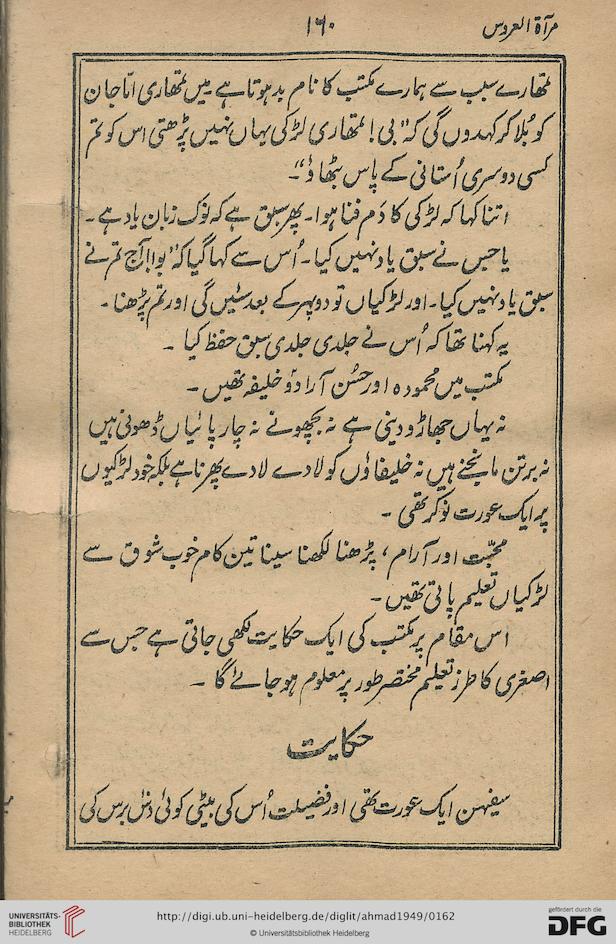 مرآۃ العروس
۱۶۰
تمھارے سبب سے ہمارے مکتب کا نام بد ہوتا ہے میں تمھاری امّا جان
کو بُلا کر کہدوں گی کہ "بی! تمھاری لڑکی یہاں نہیں پڑھتی اس کو تم
کسی دوسری اُستانی کے پاس بٹھاؤ"۔
اتنا کہا کہ لڑکی کا دَم فنا ہوا۔ پھر سبق ہے کہ نوک زبان یاد ہے۔
یا جس نے سبق یاد نہیں کیا۔ اُس سے کہا گیا کہ "بوا! آج تم نے
سبق یاد نہیں کیا۔ اور لڑکیاں تو دوپہر کے بعد سئیں گی اور تم پڑھنا۔
یہ کہنا تھا کہ اُس نے جلدی جلدی سبق حفظ کیا ۔
مکتب میں محمودہ اور حُسن آرا دوٗ خلیفہ تھیں۔
نہ یہاں جھاڑو دینی ہے نہ بچھونے نہ چارپائیاں ڈھونی ہیں
نہ برتن مانجنے ہیں نہ خلیفاؤں کو لادے لادے پھرنا ہے بلکہ خود لڑکیوں
پر ایک عورت نوکر تھی ۔
محبّت اور آرام، پڑھنا لکھنا سینا تین کام خوب شوق سے
لڑکیاں تعلیم پاتی تھیں۔
اس مقام پر مکتب کی ایک حکایت لکھی جاتی ہے جس سے
اصغری کا طرز تعلیم مختصر طور پر معلوم ہو جائے گا ۔
حکایت
سیفہن ایک عورت تھی اور فضیلت اُس کی بیٹی کوئی دنل برس کی
UNIVERSITÄTS-
BIBLIOTHEK
HEIDELBERG
http://digi.ub.uni-heidelberg.de/diglit/ahmad1949/0162
© Universitätsbibliothek Heidelberg
gefördert durch die
DFG